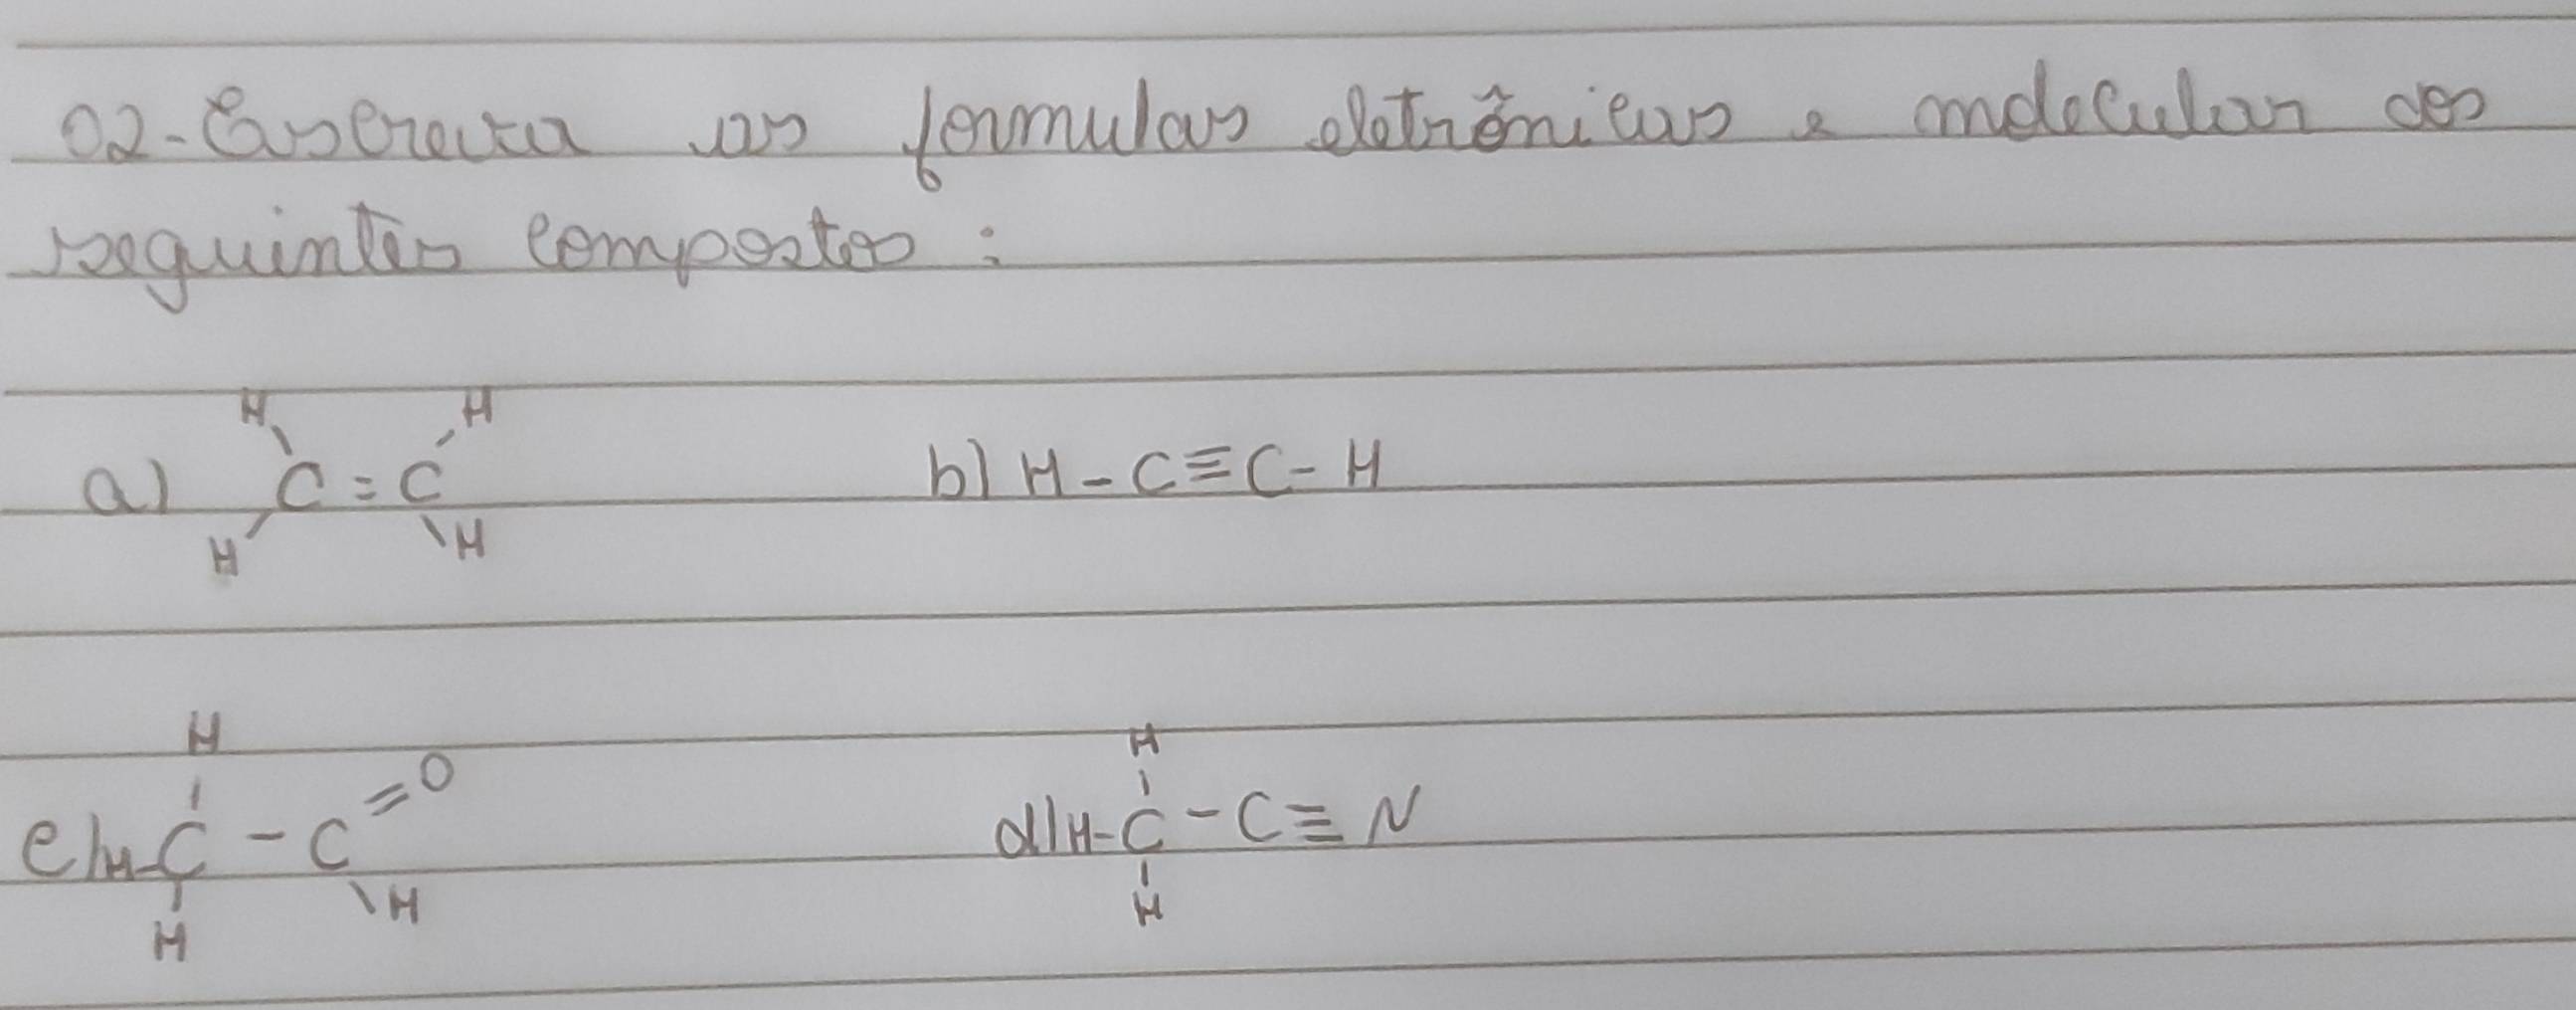 02-Escreva as formulas eletrônicas e molecular dos
seguintes compostos :
H H
a) C = C b) H - C ≡ C - H
H H
H H
c) H-C - C = O d) H-C - C ≡ N
H H H